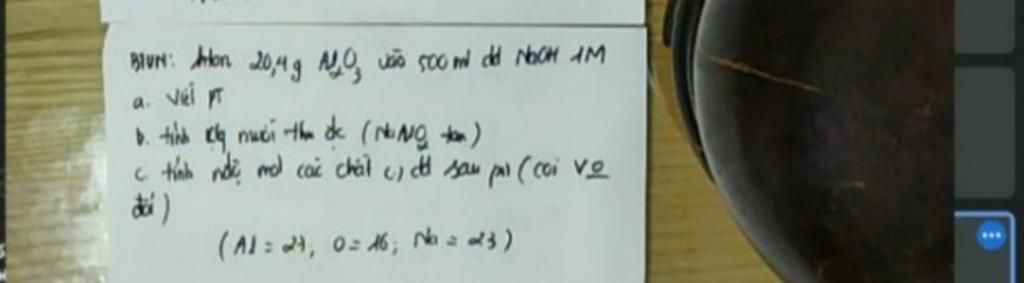 BTVN: Trộn 20,4g Al2O3 vào 500ml dd NaOH 1M
a. Viết PT
b. tính klg muối thu đc (NaAlO2 tan)
c. tính nđộ mol các chất có dd sau pứ (coi V ko
đổi)
(Al = 27, O = 16; Na = 23)